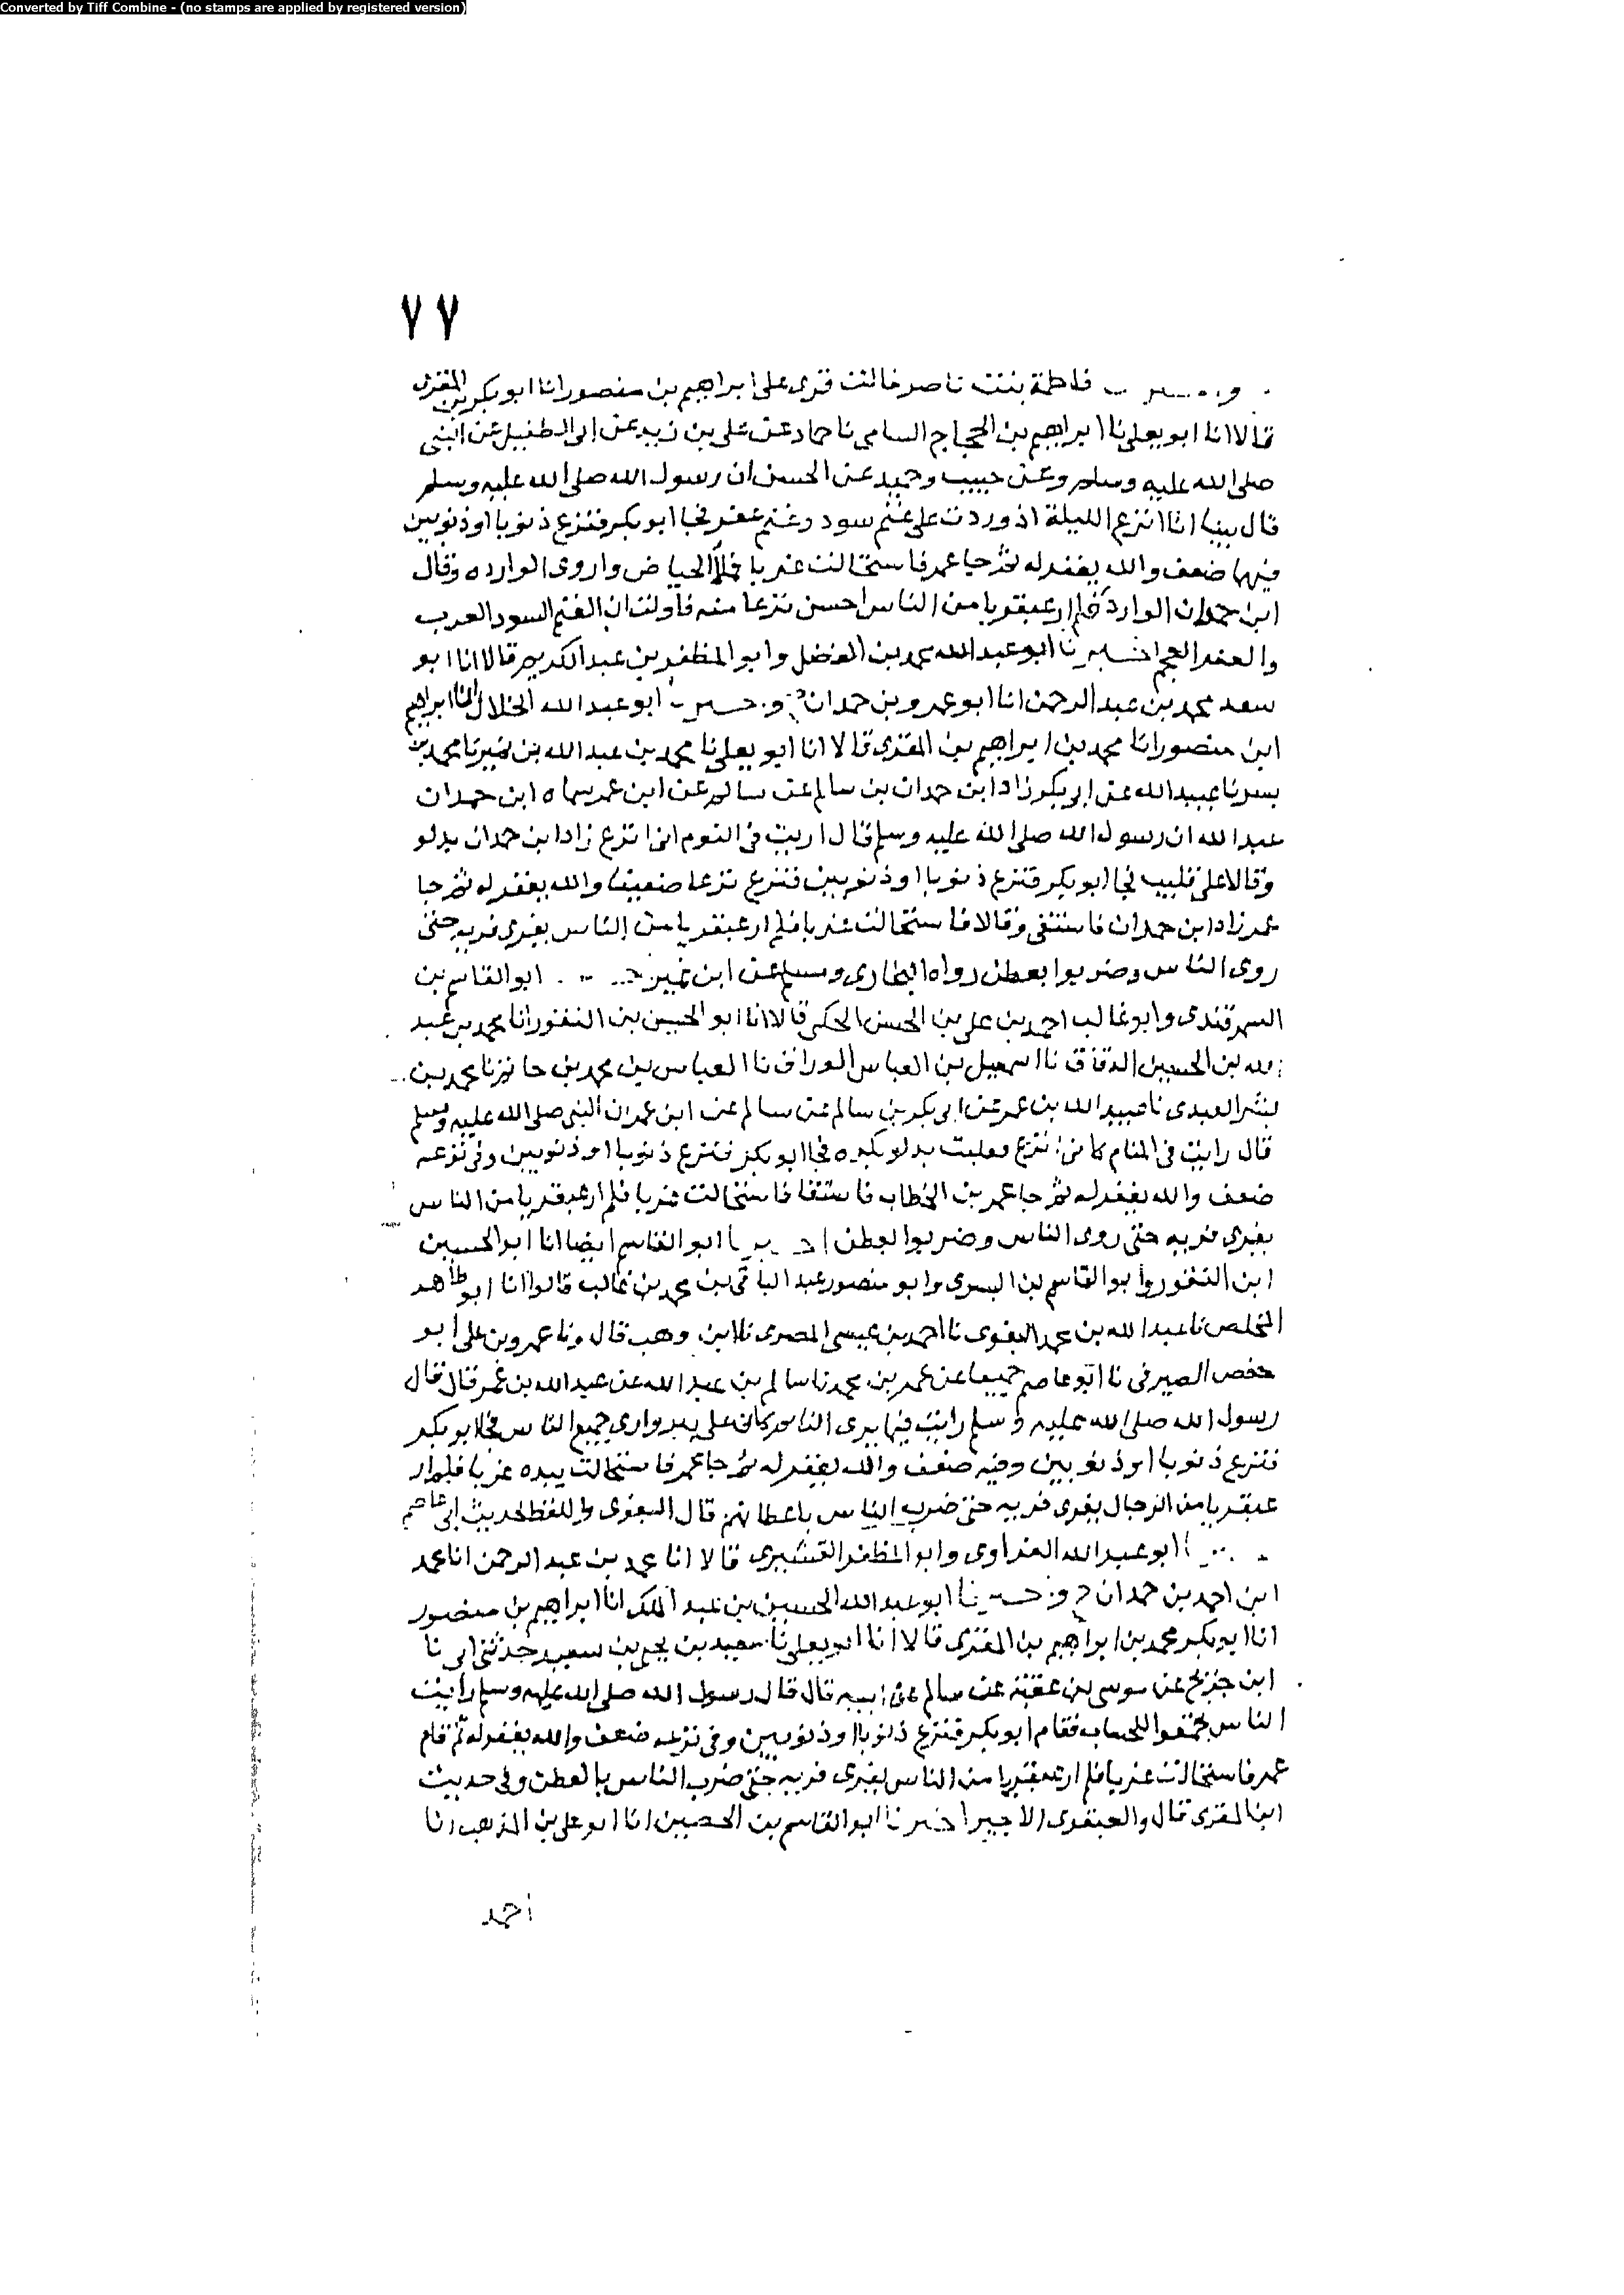 Converted by Tiff Combine - (no stamps are applied by registered version)
٧٧
فاطمة بنت ناصر قالت قرى على ابراهيم بن منصور انا ابو بكر بن المقرى
قالا انا ابو يعلى نا ابراهيم بن الحجاج السامى نا حماد عن على بن زيد عن ابى الطفيل عن النبى
صلى الله عليه وسلم وعن حبيب وحميد عن الحسن ان رسول الله صلى الله عليه وسلم
قال بينا انا انزع الليلة اذ وردت على غنم سود وغنم عفر فجا ابو بكر فنزع ذنوبا او ذنوبين
فيهما ضعف والله يغفر له ثم جا عمر فاستحالت غربا فملأ الحياض واروى الوارده وقال
ابن حمدان الوارد فلم ار عبقريا من الناس احسن نزعا منه فاولت ان الغنم السود العرب
والعفر العجم اخبرنا ابو عبد الله محمد بن الفضل وابو المظفر بن عبد الكريم قالا انا ابو
سعد محمد بن عبد الرحمن انا ابو عمرو بن حمدان ح و ابو عبد الله الخلال انا ابراهيم
ابن منصور انا محمد بن ابراهيم بن المقرى قالا انا ابو يعلى نا محمد بن عبد الله بن نمير نا محمد بن
بسر نا عبيد الله عن ابى بكر زاد ابن حمدان بن سالم عن سالم عن ابن عمر سماه ابن حمدان
عبد الله ان رسول الله صلى الله عليه وسلم قال اريت فى النوم انى انزع زاد ابن حمدان بدلو
وقالا على قليب فجا ابو بكر فنزع ذنوبا او ذنوبين فنزع نزعا ضعيفا والله يغفر له ثم جا
عمر زاد ابن حمدان فاستقى وقالا فاستحالت غربا فلم ار عبقريا من الناس يفرى فريه حتى
روى الناس وضربوا بعطن رواه البخارى ومسلم عن ابن نمير ابو القاسم بن
السمرقندى وابو غالب احمد بن على بن الحسن الحكى قالا انا ابو الحسين بن النقور انا محمد بن عبد
الله بن الحسين الدقاق نا اسمعيل بن العباس الوراق نا العباس بن محمد بن حاتم نا محمد بن
بشر العبدى نا عبيد الله بن عمر عن ابى بكر بن سالم عن سالم عن ابن عمر ان النبى صلى الله عليه وسلم
قال رايت فى المنام كانى انزع بدلو بكره فجا ابو بكر فنزع ذنوبا او ذنوبين وفى نزعه
ضعف والله يغفر له ثم جا عمر بن الخطاب فاستقا فاستحالت غربا فلم ار عبقريا من الناس
يفرى فريه حتى روى الناس وضربوا بعطن ابو القاسم ايضا انا ابو الحسين
ابن النقور وابو القاسم بن البسرى وابو منصور عبد الباقى بن محمد بن غالب قالوا انا ابو طاهر
المخلص نا عبد الله بن محمد البغوى نا احمد بن عيسى المصرى نا ابن وهب قال ونا عمرو بن على ابو
حفص الصيرفى نا ابو عاصم جميعا عن عمر بن محمد نا سالم بن عبد الله عن عبد الله بن عمر قال قال
رسول الله صلى الله عليه وسلم رايت فيما يرى النائم كانى على بير وارى جميع الناس فجا ابو بكر
فنزع ذنوبا او ذنوبين وفيه ضعف والله يغفر له ثم جا عمر فاستحالت بيده غربا فلم ار
عبقريا من الرجال يفرى فريه حتى ضرب الناس باعطانهم قال البغوى واللفظ لحديث ابى عاصم
ابو عبد الله الفراوى وابو المظفر القشيرى قالا انا محمد بن عبد الرحمن انا محمد
ابن احمد بن حمدان ح و ابو عبد الله الحسين بن عبد الملك انا ابراهيم بن منصور
انا ابو بكر محمد بن ابراهيم بن المقرى قالا انا ابو يعلى نا سعيد بن يحيى بن سعيد حدثنى ابى نا
ابن جريج عن موسى بن عقبة عن سالم عن ابيه قال قال رسول الله صلى الله عليه وسلم رايت
الناس للحساب فقام ابو بكر فنزع ذنوبا او ذنوبين وفى نزعه ضعف والله يغفر له ثم قام
عمر فاستحالت غربا فلم ار عبقريا من الناس يفرى فريه حتى ضرب الناس بالعطن وفى حديث
ابن المقرى قال والعبقرى الاجير اخبرنا ابو القاسم بن الحصين انا ابو على بن المذهب انا
احمد